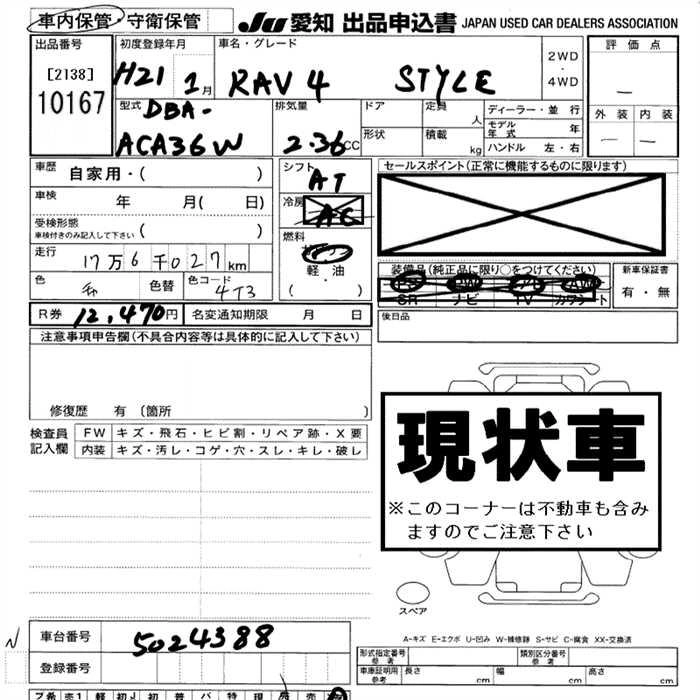 車内保管・守衛保管 JU 愛知 出品申込書 JAPAN USED CAR DEALERS ASSOCIATION
出品番号 初度登録年月 車名・グレード 評価点
[2138] H21 1月 RAV4 STYLE 2WD・4WD
10167
型式 DBA- 排気量 ドア 定員 人 ディーラー・並行 外装 内装
ACA36W 2.36CC 形状 積載 kg モデル年式 年
ハンドル 左・右
車歴 自家用・( ) シフト AT セールスポイント(正常に機能するものに限ります)
車検 年 月( 日) 冷房 AC
受検形態
車検付きのみ記入して下さい ( ) 燃料
走行 17万6千027km 軽・油
・( )
装備品(純正品に限り○をつけてください) 新車保証書
色 色替 色コード 4T3 PS PW AW 有・無
SR ナビ TV カワシート
R券 12,470円 名変通知期限 月 日 後日品
注意事項申告欄(不具合内容等は具体的に記入して下さい)
修復歴 有〔箇所 〕
検査員記入欄 FW キズ・飛石・ヒビ割・リペア跡・X要
内装 キズ・汚レ・コゲ・穴・スレ・キレ・破レ
現状車
※このコーナーは不動車も含み
ますのでご注意下さい
スペア
A-キズ E-エクボ U-凹み W-補修跡 S-サビ C-腐食 XX-交換済
N 車台番号 5024388
登録番号
形式指定番号 参考 類別区分番号 参考
車庫証明用 参考 長さ cm 幅 cm 高さ cm